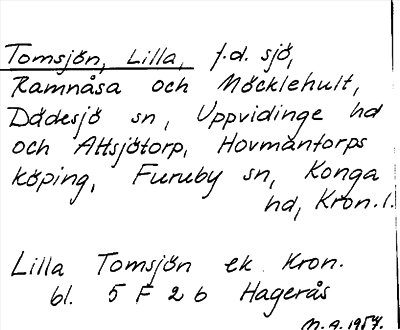 Tomsjön, Lilla, f.d. sjö,
Ramnåsa och Möcklehult,
Dädesjö sn, Uppvidinge hd
och Attsjötorp, Hovmantorps
köping, Furuby sn, Konga
hd, Kron. l.
Lilla Tomsjön ek. Kron.
bl. 5 F 2 b Hagerås
N.A. 1957.